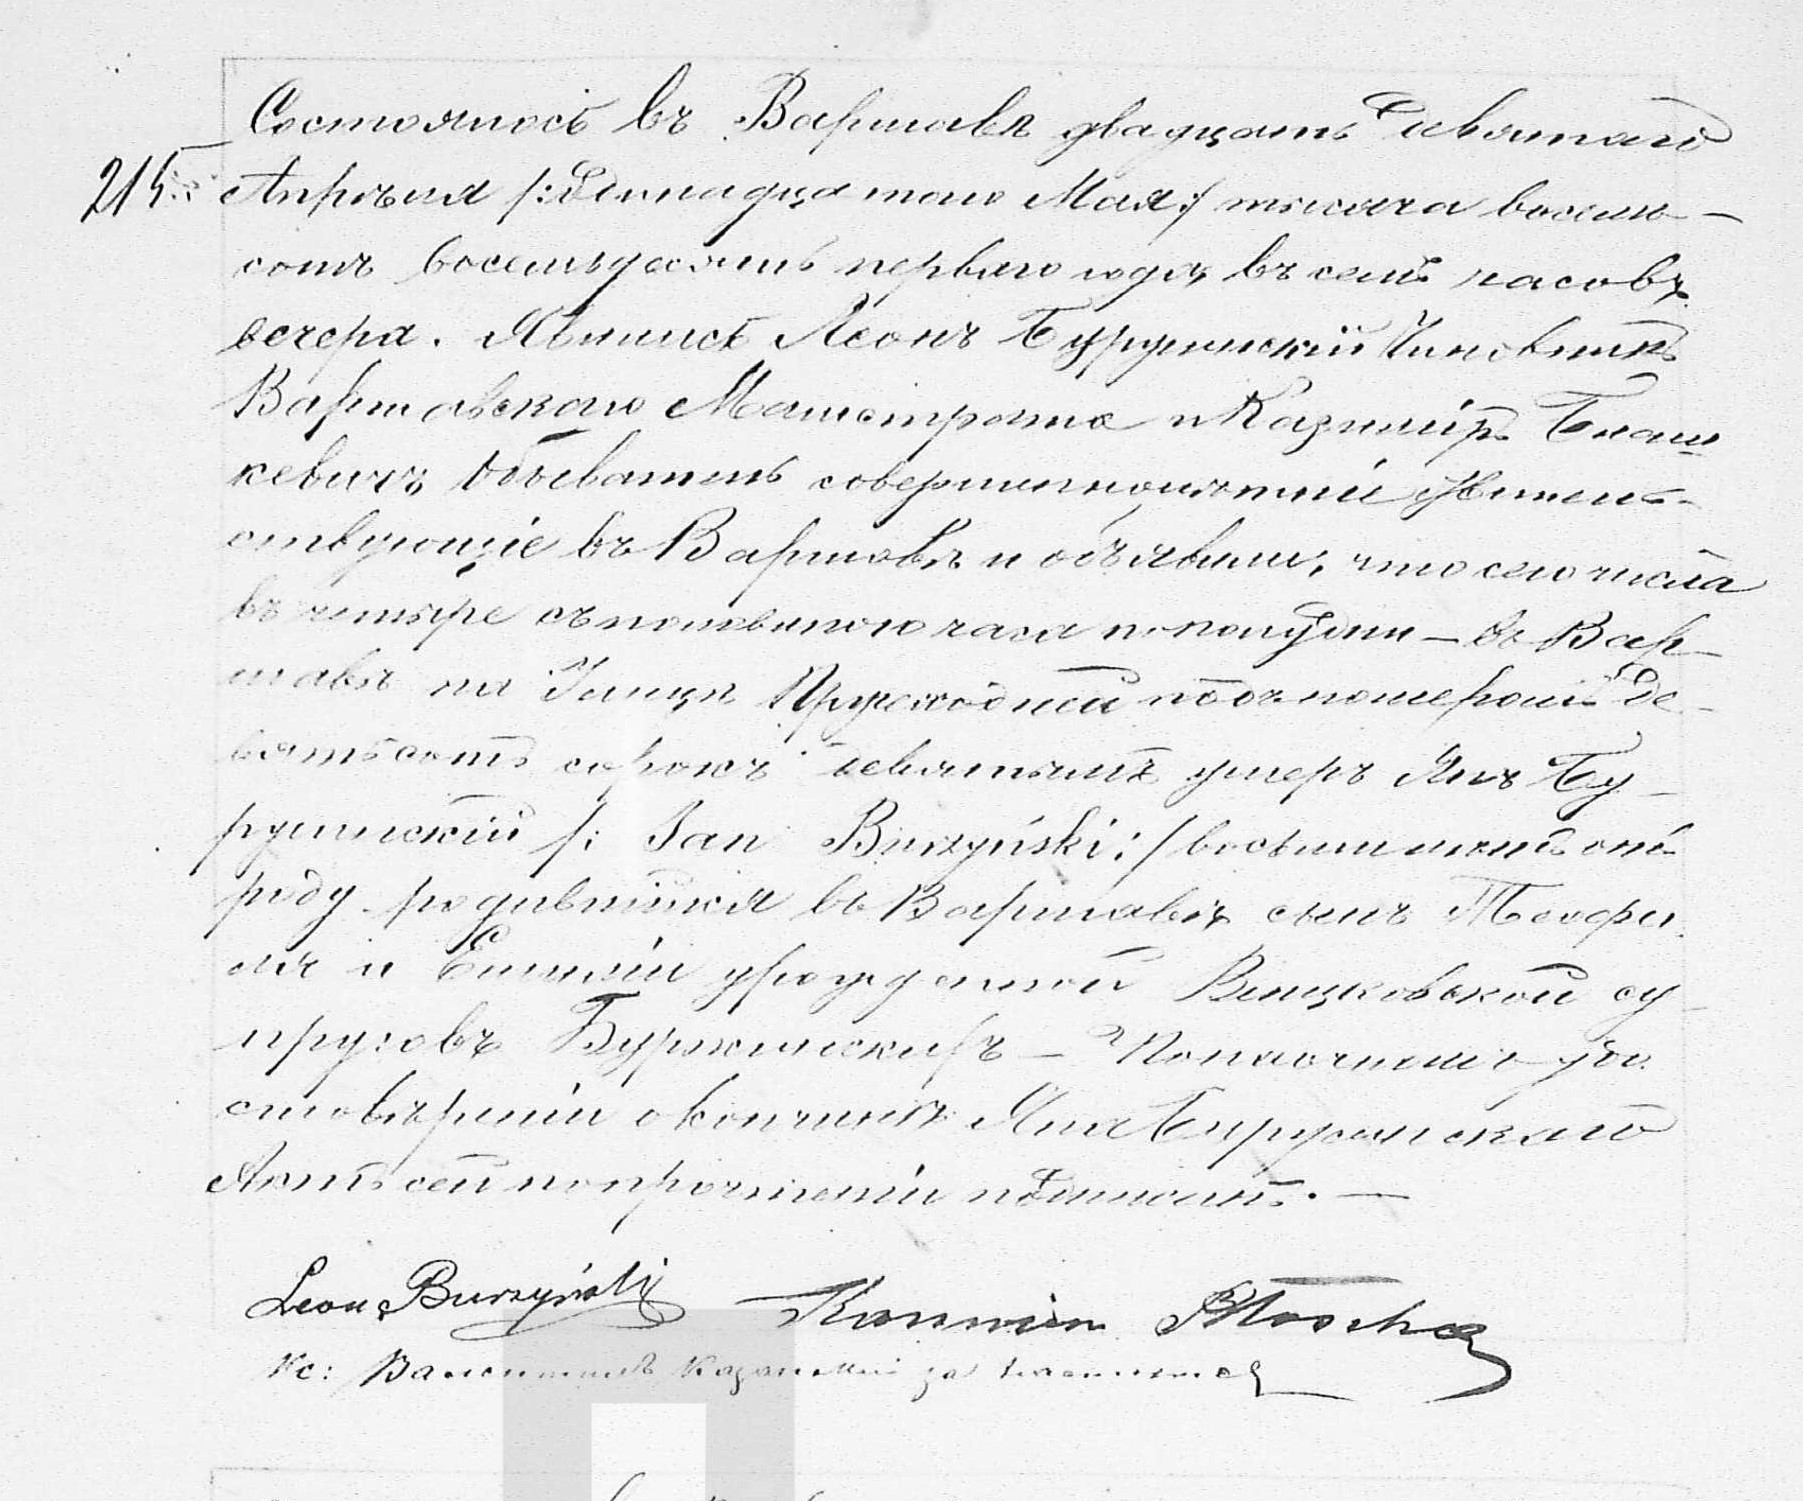 Состоялось въ Варшавѣ двадцать девятаго
215. Апрѣля /:Одинадцатаго Мая:/ тысяча восемь—
сотъ восемьдесятъ перваго года, въ семь часовъ
вечера. Явились Леонъ Буружинскій Чиновникъ
Варшавскаго Магистрата и Казиміръ Блаш
кевичъ Обыватель совершеннолѣтніе жител-
ствующіе въ Варшавѣ и объявили, что сего числа
въ четыре съ половиною часа пополудни — въ Вар—
шавѣ на Улицѣ подъ номеромъ де—
вятьсотъ сорокъ девятымъ умеръ Янъ Бу—
ружинскій /: Jan Burzyński:/ восьми лѣтъ отъ
роду родившійся въ Варшавѣ сынъ Теофи
ля и Емиліи урожденной су—
пруговъ Буржинскихъ — По наочномъ удо
стовѣреніи о кончинѣ Яна Буружинскаго
Актъ сей по прочтеніи подписанъ. —
Leon Burzyński
Кс: